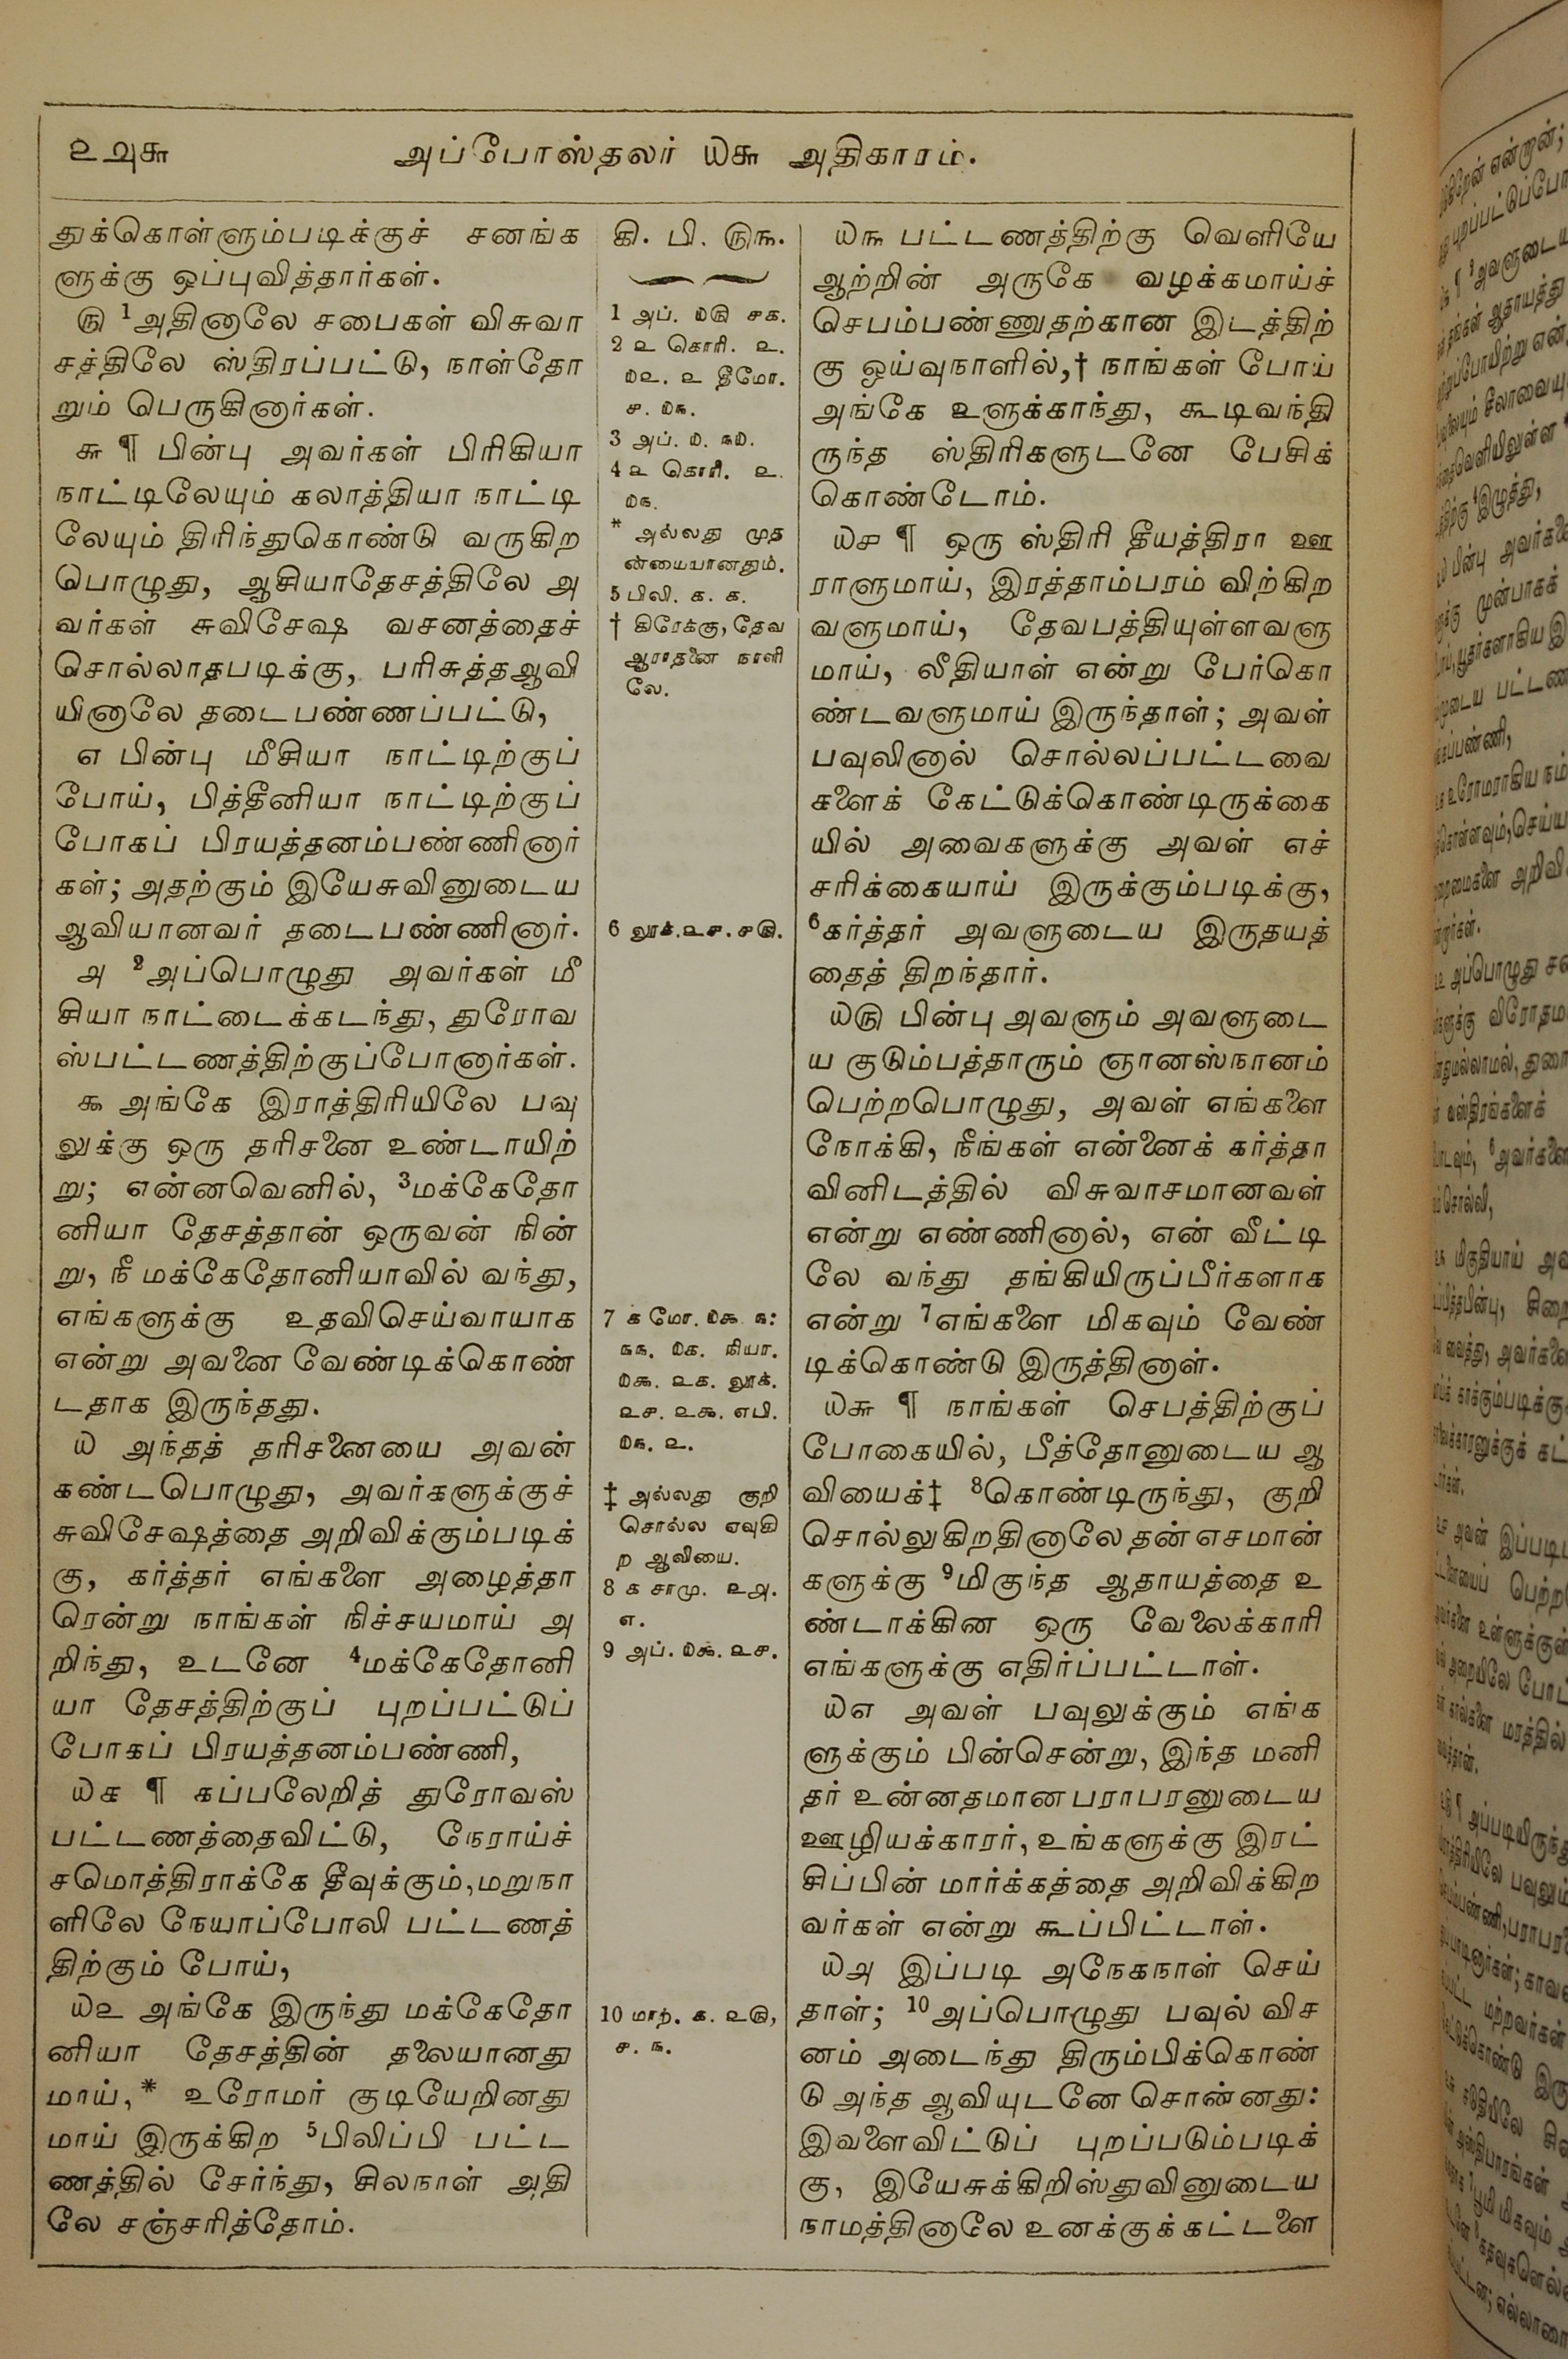 ௨௰௬ அப்போஸ்தலர் ௰௬ அதிகாரம்.
துக்கொள்ளும்படிக்குச் சனங்க
ளுக்கு ஒப்புவித்தார்கள்.
௫ 1அதினாலே சபைகள் விசுவா
சத்திலே ஸ்திரப்பட்டு, நாள்தோ
றும் பெருகினார்கள்.
௬ ¶ பின்பு அவர்கள் பிரிகியா
நாட்டிலேயும் கலாத்தியா நாட்டி
லேயும் திரிந்துகொண்டு வருகிற
பொழுது, ஆசியாதேசத்திலே அ
வர்கள் சுவிசேஷ வசனத்தைச்
சொல்லாதபடிக்கு, பரிசுத்தஆவி
யினாலே தடைபண்ணப்பட்டு,
௭ பின்பு மீசியா நாட்டிற்குப்
போய், பித்தீனியா நாட்டிற்குப்
போகப் பிரயத்தனம்பண்ணினார்
கள்; அதற்கும் இயேசுவினுடைய
ஆவியானவர் தடைபண்ணினார்.
௮ 2அப்பொழுது அவர்கள் மீ
சியா நாட்டைக்கடந்து, துரோவ
ஸ்பட்டணத்திற்குப்போனார்கள்.
௯ அங்கே இராத்திரியிலே பவு
லுக்கு ஒரு தரிசனை உண்டாயிற்
று; என்னவெனில், 3மக்கேதோ
னியா தேசத்தான் ஒருவன் நின்
று, நீ மக்கேதோனியாவில் வந்து,
எங்களுக்கு உதவிசெய்வாயாக
என்று அவனை வேண்டிக்கொண்
டதாக இருந்தது.
௰ அந்தத் தரிசனையை அவன்
கண்டபொழுது, அவர்களுக்குச்
சுவிசேஷத்தை அறிவிக்கும்படிக்
கு, கர்த்தர் எங்களை அழைத்தா
ரென்று நாங்கள் நிச்சயமாய் அ
றிந்து, உடனே 4மக்கேதோனி
யா தேசத்திற்குப் புறப்பட்டுப்
போகப் பிரயத்தனம்பண்ணி,
௰௧ ¶ கப்பலேறித் துரோவஸ்
பட்டணத்தைவிட்டு, நேராய்ச்
சமொத்திராக்கே தீவுக்கும், மறுநா
ளிலே நேயாப்போலி பட்டணத்
திற்கும் போய்,
௰௨ அங்கே இருந்து மக்கேதோ
னியா தேசத்தின் தலையானது
மாய்,* உரோமர் குடியேறினது
மாய் இருக்கிற 5பிலிப்பி பட்ட
ணத்தில் சேர்ந்து, சிலநாள் அதி
லே சஞ்சரித்தோம்.
கி. பி. ௫௩.
1 அப். ௰௫ ௪௧.
2 ௨ கொரி. ௨.
௰௨. ௨ தீமோ.
௪. ௰௩.
3 அப். ௰. ௩௰.
4 ௨ கொரி. ௨.
௰௩.
* அல்லது முத
ன்மையானதும்.
5 பிலி. ௧. ௧.
† கிரேக்கு, தேவ
ஆராதனை நாளி
லே.
6 லூக். ௨௪. ௪௫.
7 ௧ மோ. ௰௯ ௩:
௩௩. ௰௧. நியா.
௰௯. ௨௧. லூக்.
௨௪. ௨௯. எபி.
௰௩. ௨.
‡ அல்லது குறி
சொல்ல ஏவுகி
ற ஆவியை.
8 ௧ சாமு. ௨௮.
௭.
9 அப். ௰௯. ௨௪.
10 மாற். ௧. ௨௫,
௪. ௩.
௰௩ பட்டணத்திற்கு வெளியே
ஆற்றின் அருகே வழக்கமாய்ச்
செபம்பண்ணுதற்கான இடத்திற்
கு ஓய்வுநாளில்,† நாங்கள் போய்
அங்கே உளுக்காந்து, கூடிவந்தி
ருந்த ஸ்திரிகளுடனே பேசிக்
கொண்டோம்.
௰௪ ¶ ஒரு ஸ்திரி தீயத்திரா ஊ
ராளுமாய், இரத்தாம்பரம் விற்கிற
வளுமாய், தேவபத்தியுள்ளவளு
மாய், லீதியாள் என்று பேர்கொ
ண்டவளுமாய் இருந்தாள்; அவள்
பவுலினால் சொல்லப்பட்டவை
களைக் கேட்டுக்கொண்டிருக்கை
யில் அவைகளுக்கு அவள் எச்
சரிக்கையாய் இருக்கும்படிக்கு,
6கர்த்தர் அவளுடைய இருதயத்
தைத் திறந்தார்.
௰௫ பின்பு அவளும் அவளுடை
ய குடும்பத்தாரும் ஞானஸ்நானம்
பெற்றபொழுது, அவள் எங்களை
நோக்கி, நீங்கள் என்னைக் கர்த்தா
வினிடத்தில் விசுவாசமானவள்
என்று எண்ணினால், என் வீட்டி
லே வந்து தங்கியிருப்பீர்களாக
என்று 7எங்களை மிகவும் வேண்
டிக்கொண்டு இருத்தினாள்.
௰௬ ¶ நாங்கள் செபத்திற்குப்
போகையில், பீத்தோனுடைய ஆ
வியைக்‡ 8கொண்டிருந்து, குறி
சொல்லுகிறதினாலே தன் எசமான்
களுக்கு 9மிகுந்த ஆதாயத்தை உ
ண்டாக்கின ஒரு வேலைக்காரி
எங்களுக்கு எதிர்ப்பட்டாள்.
௰௭ அவள் பவுலுக்கும் எங்க
ளுக்கும் பின்சென்று, இந்த மனி
தர் உன்னதமான பராபரனுடைய
ஊழியக்காரர், உங்களுக்கு இரட்
சிப்பின் மார்க்கத்தை அறிவிக்கிற
வர்கள் என்று கூப்பிட்டாள்.
௰௮ இப்படி அநேகநாள் செய்
தாள்; 10அப்பொழுது பவுல் விச
னம் அடைந்து திரும்பிக்கொண்
டு அந்த ஆவியுடனே சொன்னது:
இவளைவிட்டுப் புறப்படும்படிக்
கு, இயேசுக்கிறிஸ்துவினுடைய
நாமத்தினாலே உனக்குக்கட்டளை